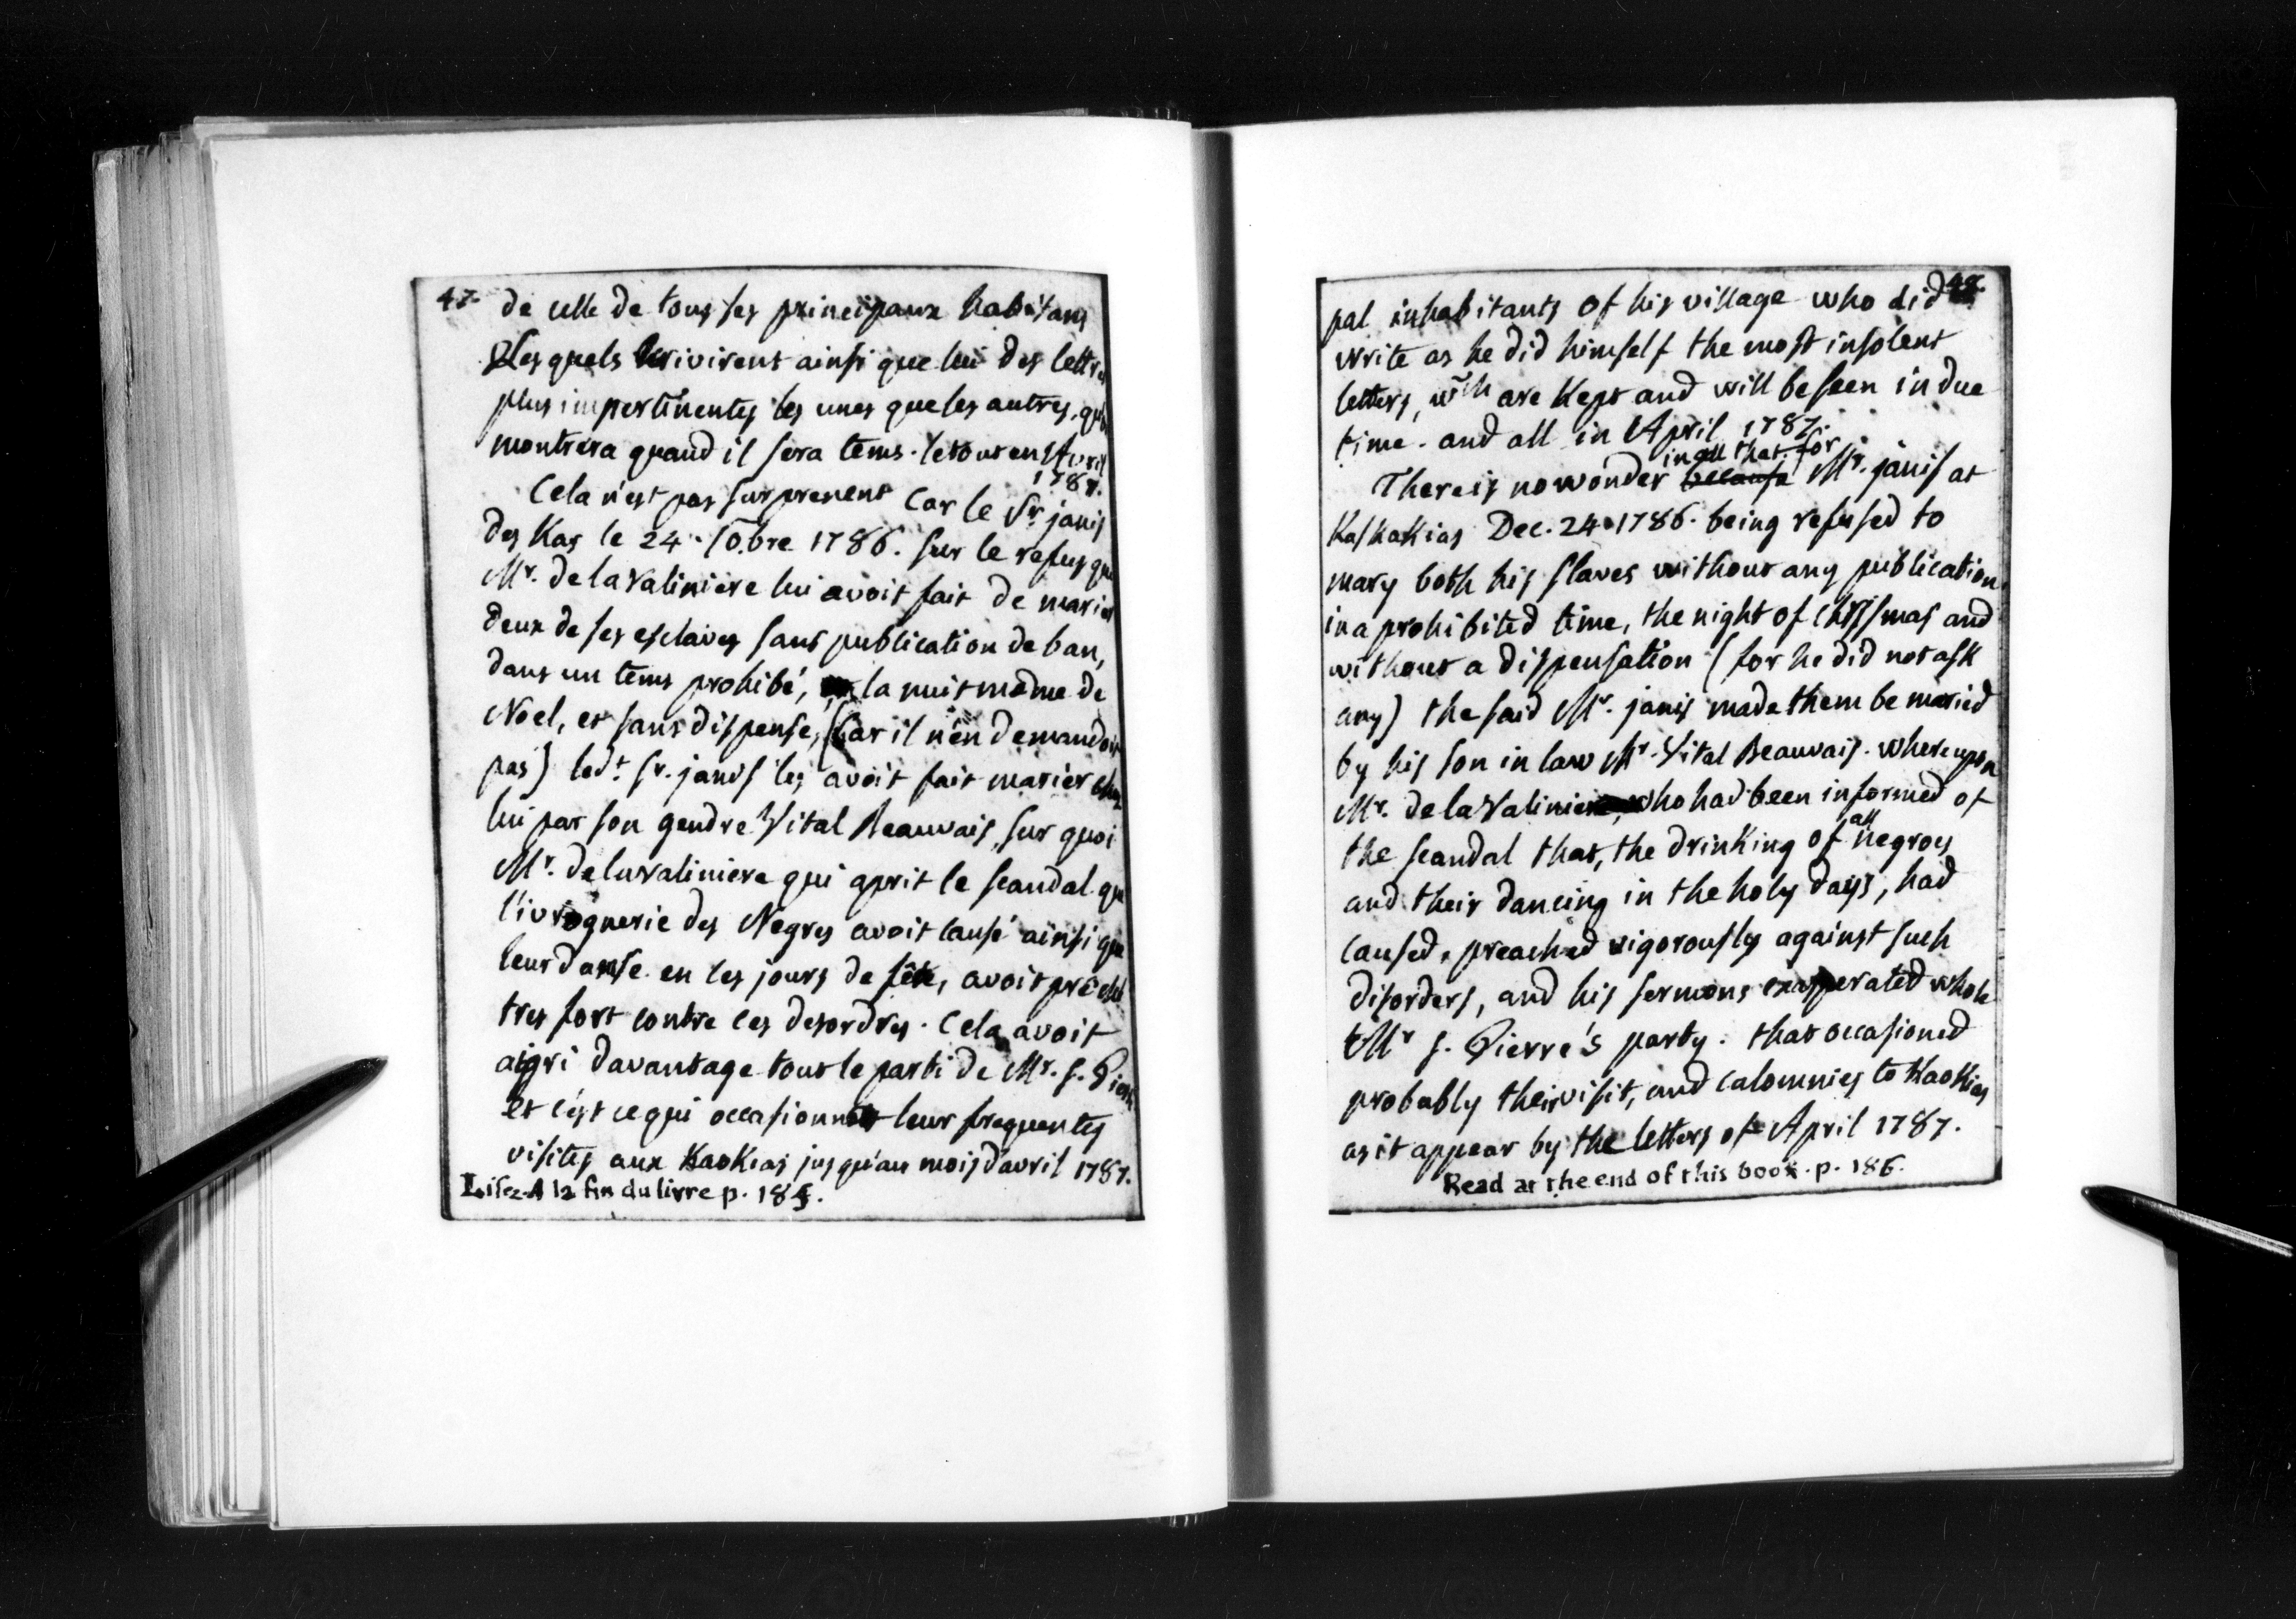 47.
de celle de tous ses principaux habitans
lesquels ecrivirent ainsi que lui des lettres
plus impertinentes les unes que les autres, qu'on
montrera quand il sera tems. le tout en Avril
1787.
Cela n'est pas surprenent Car le Sr. janis
des Kas le 24. 10.bre 1786. sur le refus que
Mr. de la Valiniere lui avoit fait de marier
deux de ses esclaves sans publication de ban,
dans un tems prohibé, la nuit même de
Noel, et sans dispense, (Car il n'en demandoit
pas) ledt. Sr. janis les avoit fait marier chez
lui par son gendre Vital Beauvais, sur quoi
Mr. de la valiniere qui aprit le scandal que
l'ivrognerie des Negres avoit causé ainsi que
leur danse en ces jours de fête, avoit préché
tres fort contre ces desordres. Cela avoit
aigri davantage tout le parti de Mr. s. Pierre
et c'est ce qui occasionna leur frequentes
visites aux Kaokias jusqu'au mois d'avril 1787.
Lisez A la fin du livre p. 185.
48.
pal inhabitants of his village who did
write as he did himself the most insolent
letters, wch are Kept and will be seen in due
time. and all in April 1787.
in all that. for
There is no wonder because Mr. janis at
Kaskakias Dec. 24. 1786. being refused to
mary both his slaves without any publication,
in a prohibited time, the night of Chrismas and
without a dispensation (for he did not ask
any) the said Mr. janis made them be maried
by his son in law Mr. Vital Beauvais. whereupon
Mr. de la Valiniere, who had been informed of
all
the scandal that, the drinking of negroes
and their dancing in the holy days, had
caused, preached vigorously against such
disorders, and his sermons exasperated whole
Mr s. Pierre's party. that occasioned
probably their visit, and calomnies to Kaokias
as it appear by the letters of April 1787.
Read at the end of this book. p. 186.